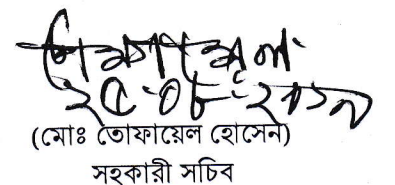 ২৫.০৮.২০১৯
(মোঃ তোফায়েল হোসেন)
সহকারী সচিব